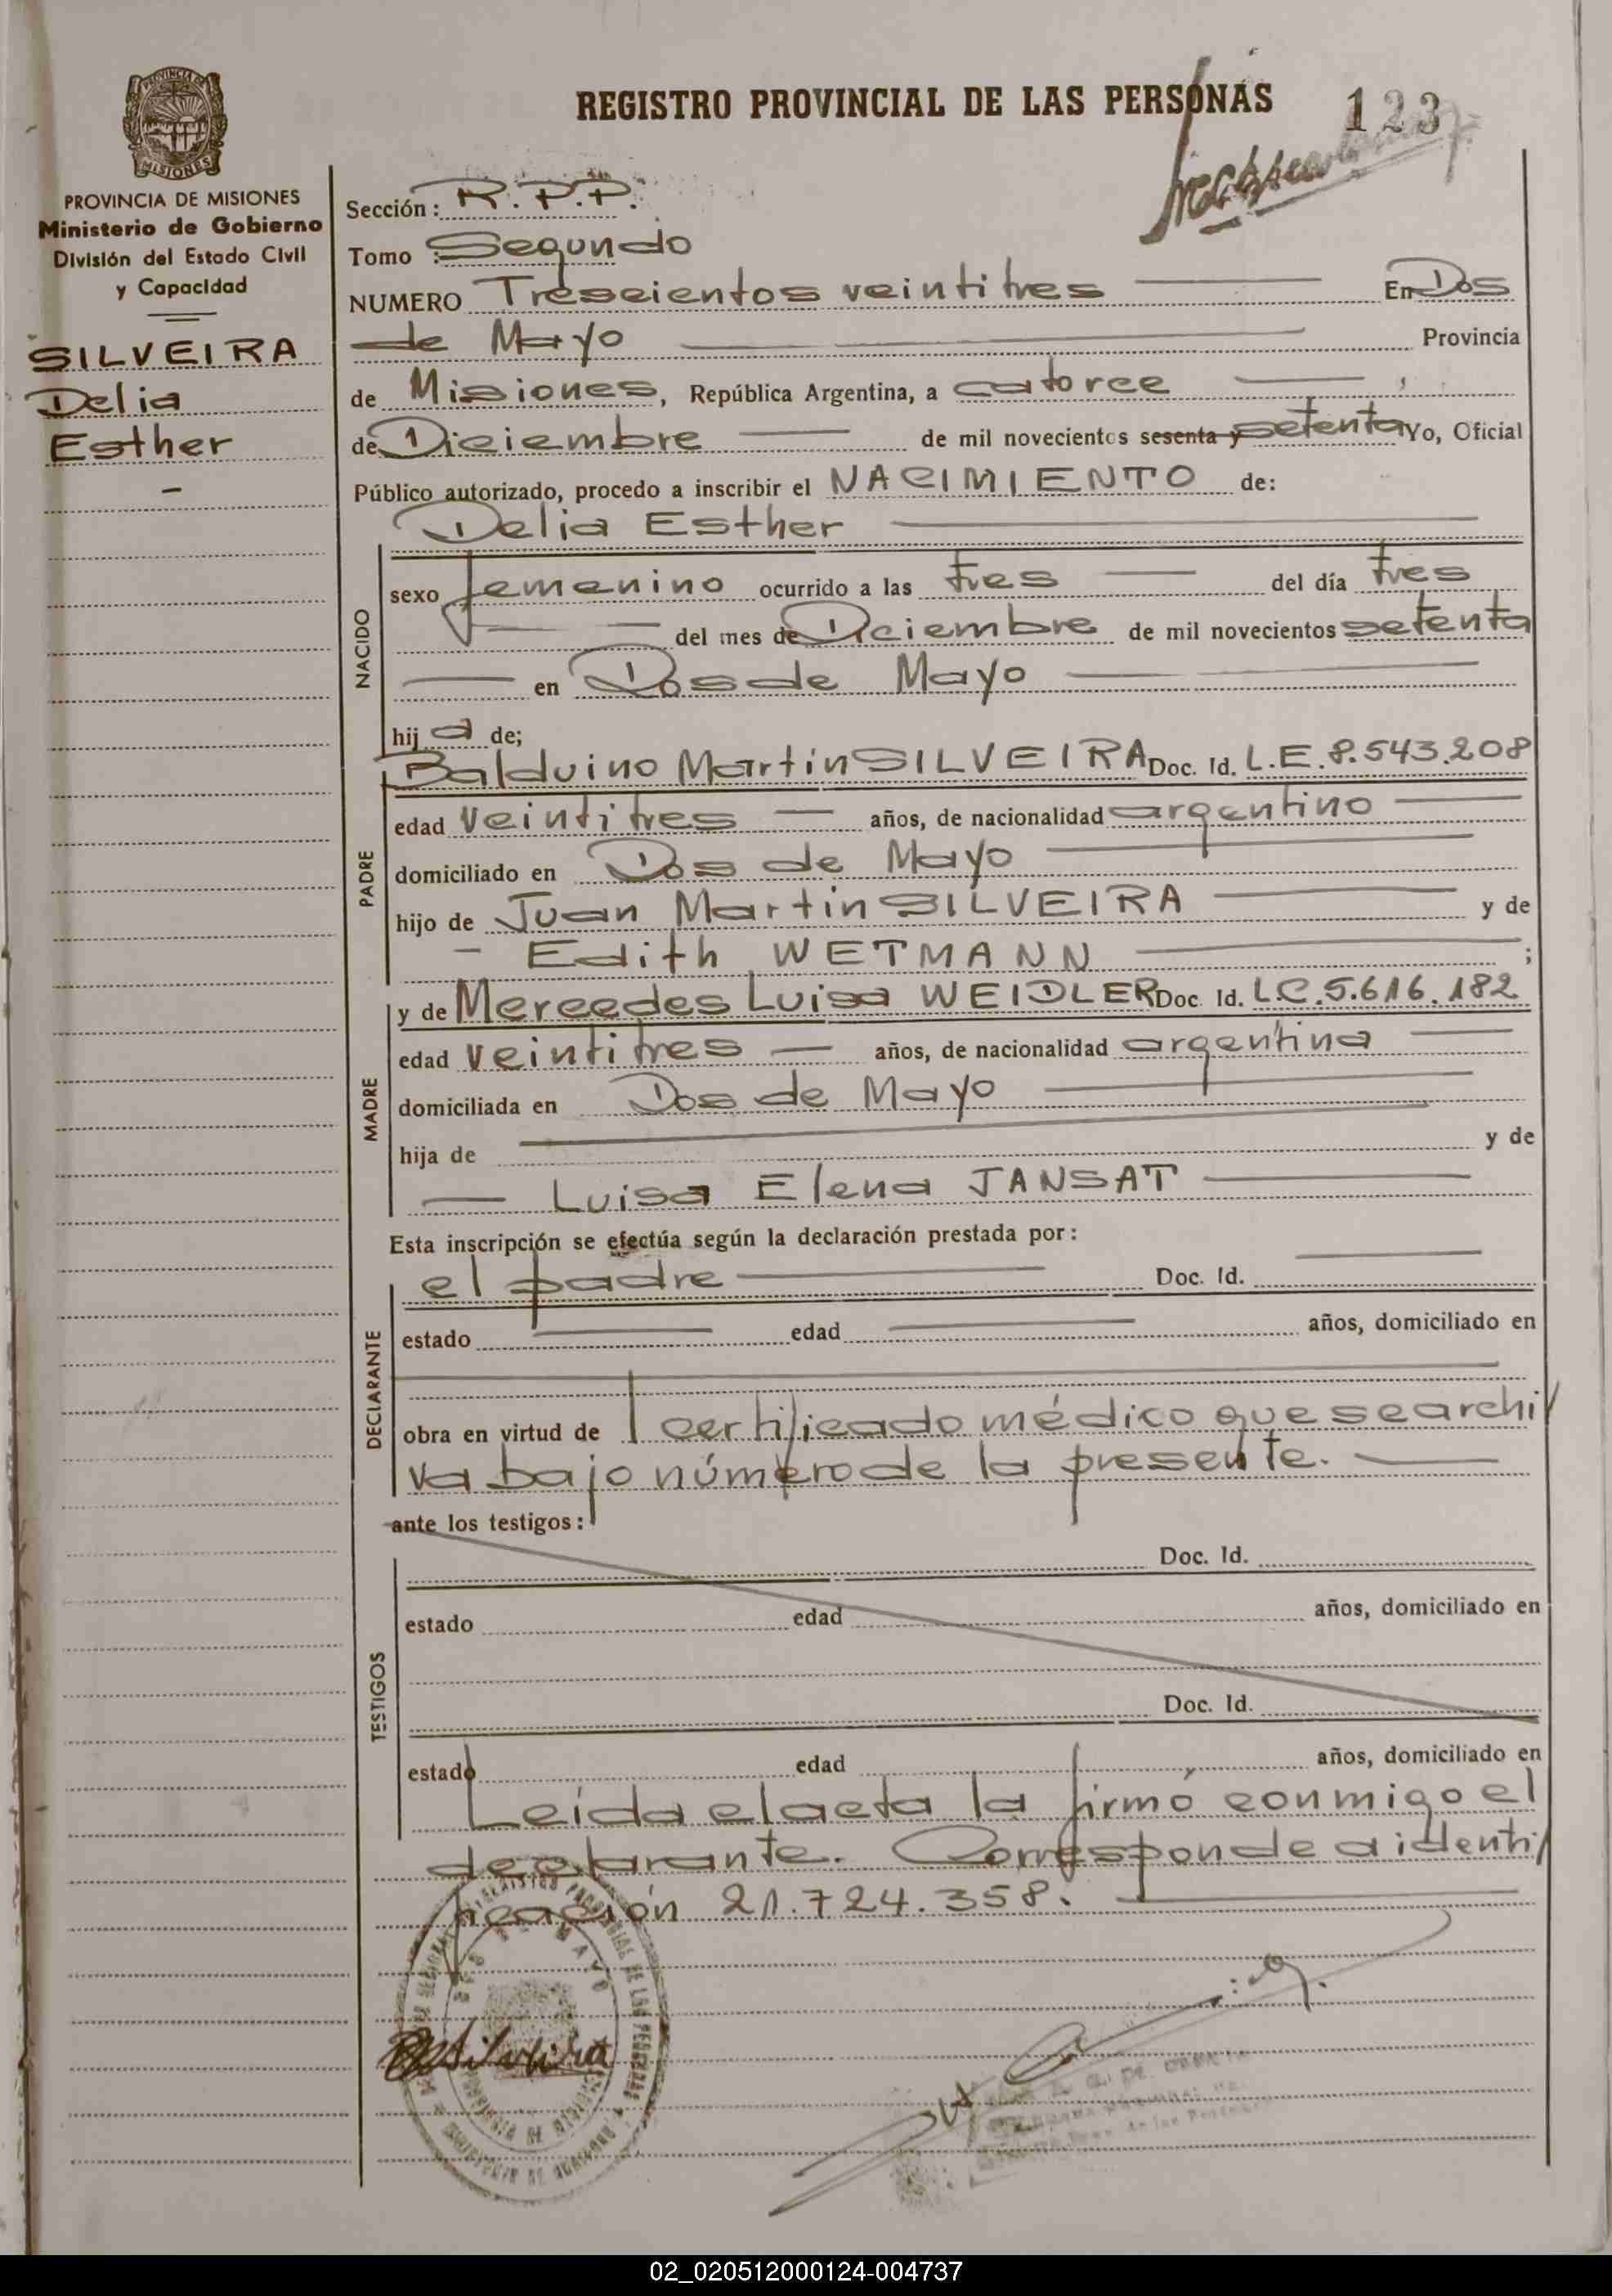 REGISTRO PROVINCIAL DE LAS PERSONAS 123
PROVINCIA DE MISIONES
Ministerio de Gobierno
División del Estado Civil
y Capacidad
SILVEIRA
Delia
Esther
Sección: R.P.P.
Tomo : Segundo
NUMERO Trescientos veintitres En Dos
de Mayo Provincia
de Misiones, República Argentina, a catorce
de Diciembre de mil novecientos sesenta y setenta Yo, Oficial
Público autorizado, procedo a inscribir el NACIMIENTO de:
Delia Esther
NACIDO
sexo femenino ocurrido a las tres del día tres
del mes de Diciembre de mil novecientos setenta
en Dos de Mayo
hija de;
PADRE
Balduino Martin SILVEIRA Doc. Id. L.E. 8.543.208
edad veintitres años, de nacionalidad argentino
domiciliado en Dos de Mayo
hijo de Juan Martin SILVEIRA y de
- Edith WETMANN ;
MADRE
y de Mercedes Luisa WEIDLER Doc. Id. L.C. 5.616.182
edad veintitres años, de nacionalidad argentina
domiciliada en Dos de Mayo
hija de y de
Luisa Elena JANSAT
Esta inscripción se efectúa según la declaración prestada por:
DECLARANTE
el padre Doc. Id.
estado edad años, domiciliado en
obra en virtud de 1 certificado médico que se archi
va bajo número de la presente.
ante los testigos:
TESTIGOS
Doc. Id.
estado edad años, domiciliado en
Doc. Id.
estado edad años, domiciliado en
Leída el acta la firmó conmigo el
declarante. Corresponde a identi
ficación 21.724.358.
Silveira
02_020512000124-004737